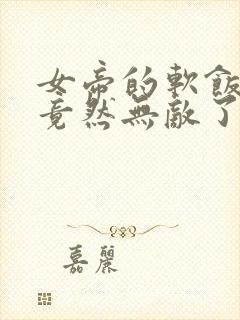 女帝的軟飯
竟然無敵了
嘉麗